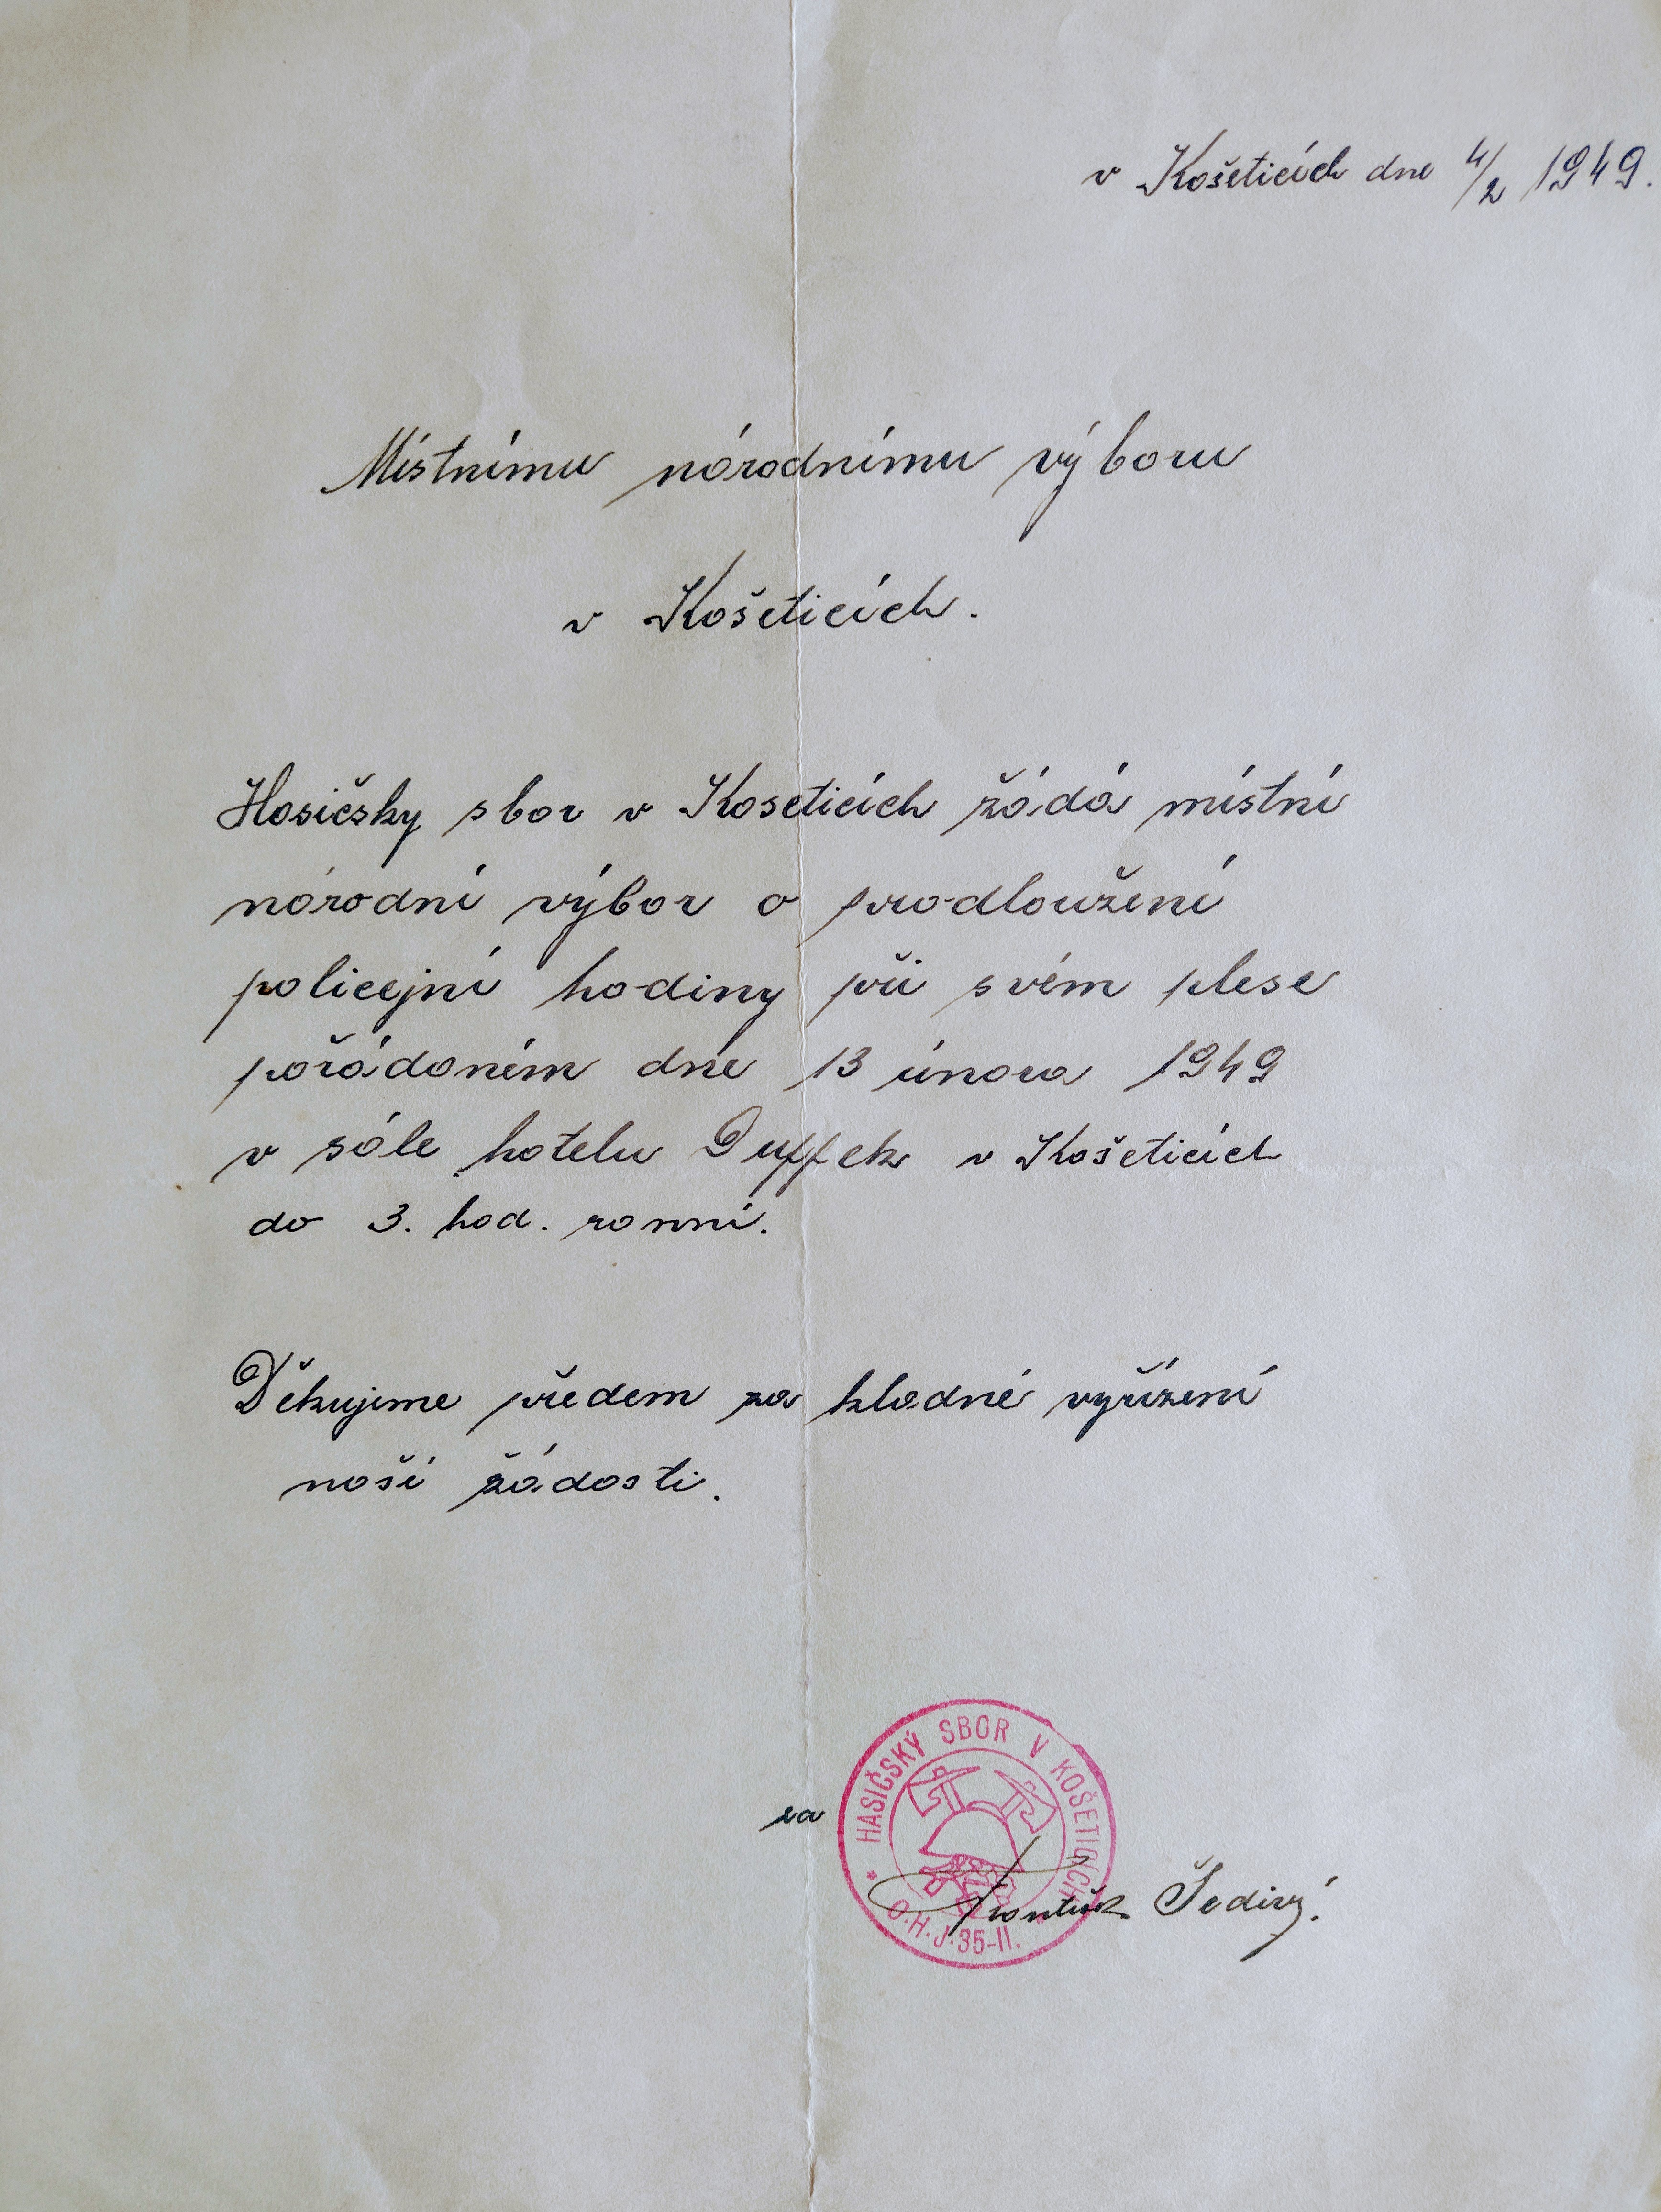 v Košeticích dne 4/2 1949.
Místnímu národnímu výboru
v Košeticích.
Hasičsky sbor v Koseticích žádá místní
národní výbor o prodloužení
policejní hodiny při svém plese
pořádaném dne 13 února 1949
v sále hotelu Duffek v Košeticích
do 3. hod. ranní.
Děkujeme předem za kladné vyřízení
naší žádosti.
HASIČSKÝ SBOR V KOŠETICÍCH
za
František Šedivý.
O.H.J.35-II.